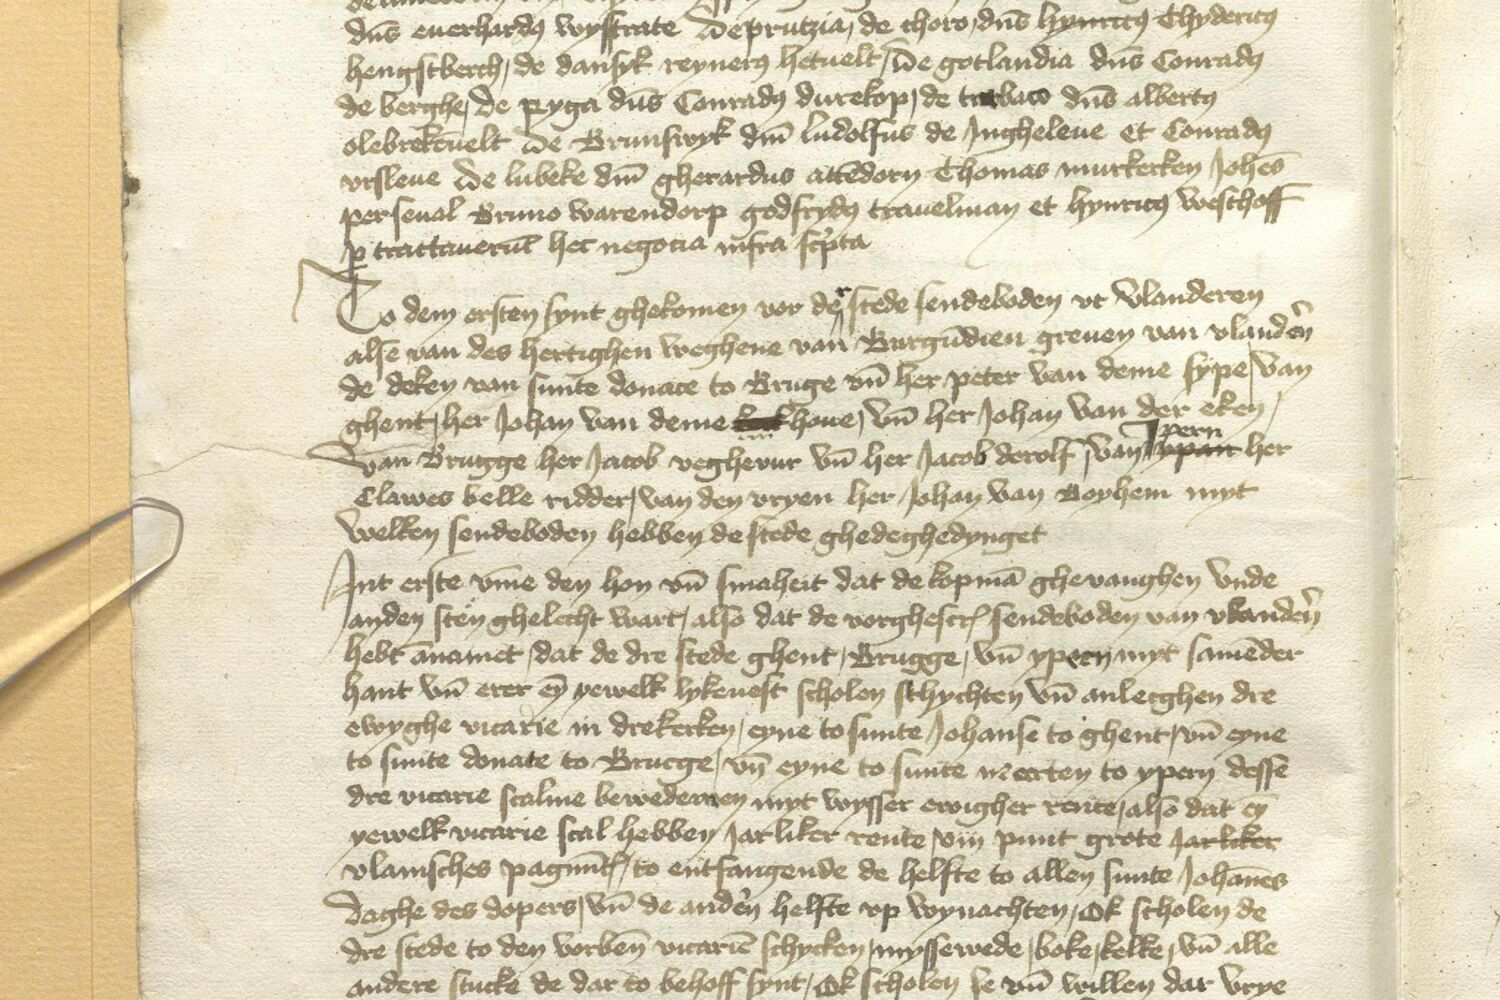 dn̄s euerhardꝰ wystrate De prutzia, de thoro, dn̄s hynricꝰ Thydericꝰ
hengstberch, de dansyk reynerꝰ hetuelt, De gotlandia dn̄s Conradꝰ
de berghe, De Ryga dn̄s Conradꝰ durekop, de tarbato dn̄s albertꝰ
olebrekēuelt De Brunswyk dn̄i ludolfus de Jngheleue et Conradꝰ
vrsleue De lubeke dn̄i gherardus attēdorn Thomas murkerken Johēs
perseual Bruno warendorp godfrydꝰ trauelman et hynricꝰ westhoff
ꝑ tractauerūt hec negocia infra sc͛pta
To dem ersten synt ghekomen vor der stede sendeboden vt Vlanderen
alse van des hertighen weghene van Burgūdien greuen van vlandēn
de deken van sunte donate to Bruge vn̄ her peter van deme sype, van
ghent, her Johan van deme houe, vn̄ her Johan van der eken,
van Brugge her Jacob vegheuur vn̄ her Jacob derolf, van Ypern her
Clawes belle ridder, van den vryen her Johan van Boyhem myt
welken sendeboden hebben de stede ghedeghedynget
Jnt erste vm̄e den hon vn̄ smaheit dat de kopmā ghevanghen vnde
an den sten ghelecht wart, also dat de vorghescr̄ sendeboden van vlandēn
hebt ānamet, dat de dre stede ghent, Brugge, vn̄ ypern myt samēder
hant vn̄ erer eȳ yewelk lykeuest scholen sthychten vn̄ anlecghen dre
ewyghe vicarie in dre kerken, eyne to sunte Johanse to ghent, vn̄ eyne
to sunte donate to Brucge, vn̄ eyne to sunte meerten to ypern desse
dre vicarie scalme bewedemen myt wysser ewigher rente, also dat eȳ
yewelk vicarie scal hebben Jarliker rente viij punt grote Jarliker
vlamsches pagmēt, to entfangende de helfte to allen sunte Johānes
daghe des dopers, vn̄ de andēn helfte vp wynachten, Ok scholen de
dre stede to den vorbēn vicariē schycken, myssewede, boke, kelke, vn̄ alle
andere stucke de dar to behoff synt, Ok scholen se vn̄ willen dar vrye